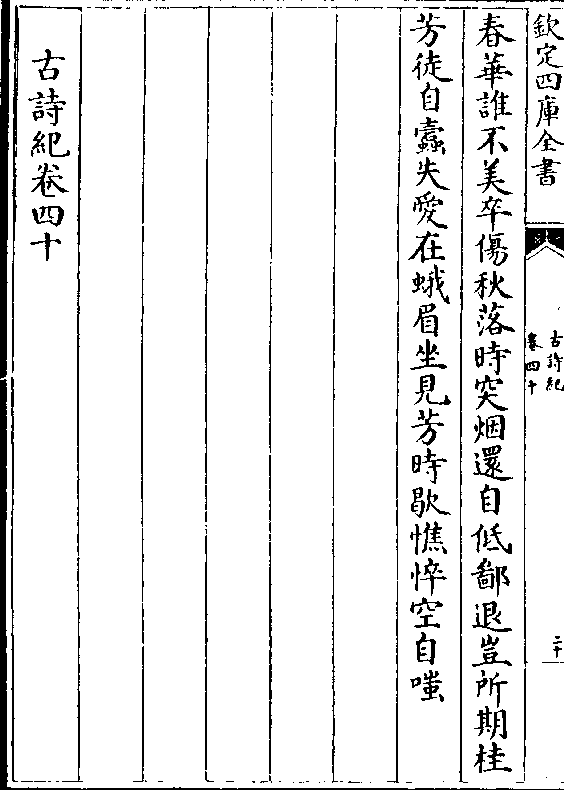 欽定四庫全書
古詩紀
卷四十
二十
春華誰不美卒傷秋落時突烟還自低鄙退豈所期桂
芳徒自蠹失愛在蛾眉坐見芳時歇憔悴空自嗤
古詩紀卷四十